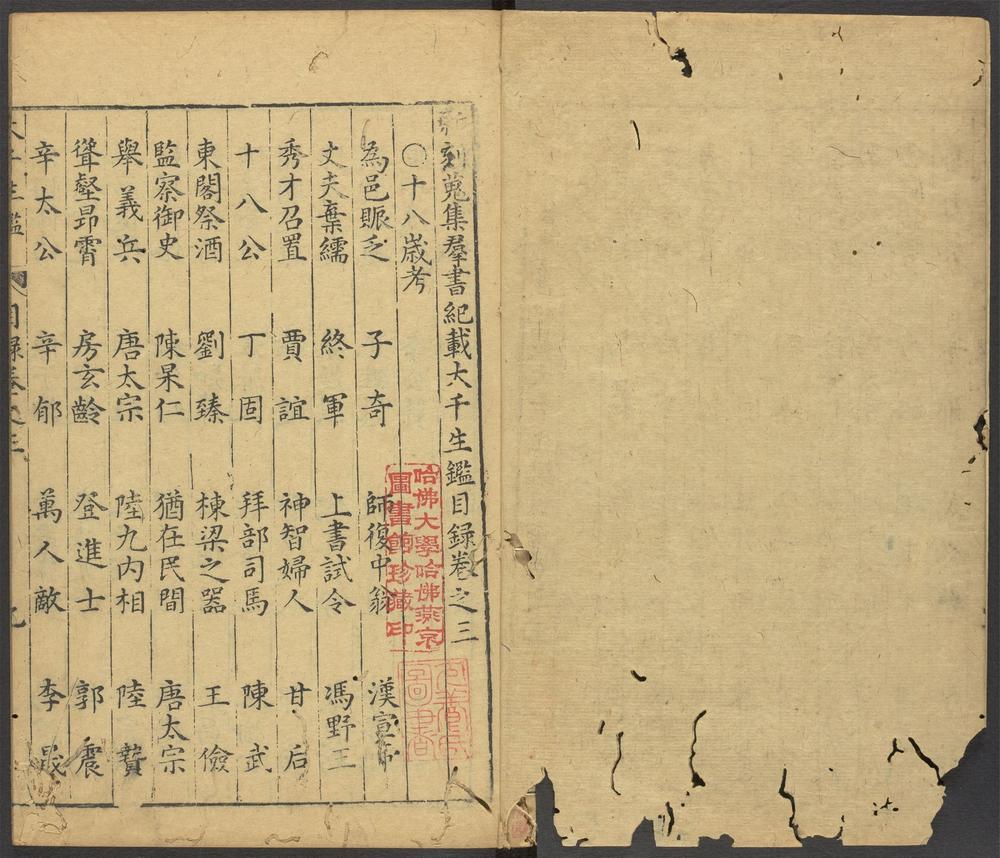 刻蒐集羣書紀載大千生鑑目録卷之三
○十八歲考
為邑賑乏 子奇 師復中翁 漢宣帝
丈夫棄繻 終軍 上書試令 馮野王
秀才召置 賈誼 神智婦人 甘后
十八公 丁固 拜部司馬 陳武
東閣祭酒 劉臻 棟梁之器 王儉
監察御史 陳杲仁 猶在民間 唐太宗
舉義兵 唐太宗 陸九內相 陸贄
聳壑昻霄 房玄齡 登進士 郭震
辛太公 辛郁 萬人敵 李晟
哈佛大學哈佛燕京
圖書館珍藏印